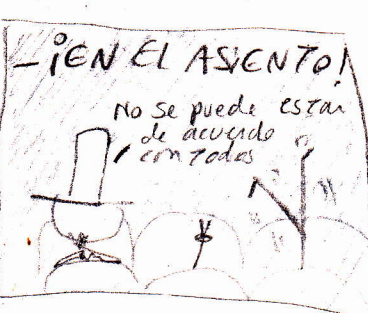 - ¡EN El ASIENTO!
No se puede estar
de acuerdo
con todos